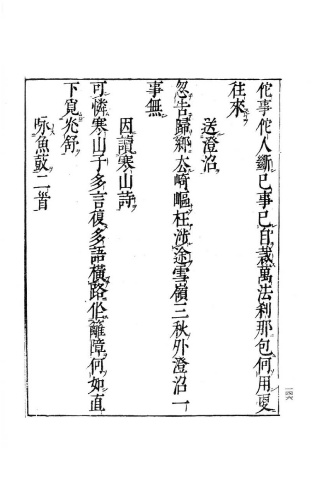 佗事佗人斷己事己自裁萬法刹那包何用更
往來
送澄沼
忽告歸鄉去崎嶇枉涉途雪嶺三秋外澄沼一
事無
因讀寒山詩
可憐寒山子多言復多語橫路作籬障何如直
下覓光舒
咏魚鼓二首
一四六